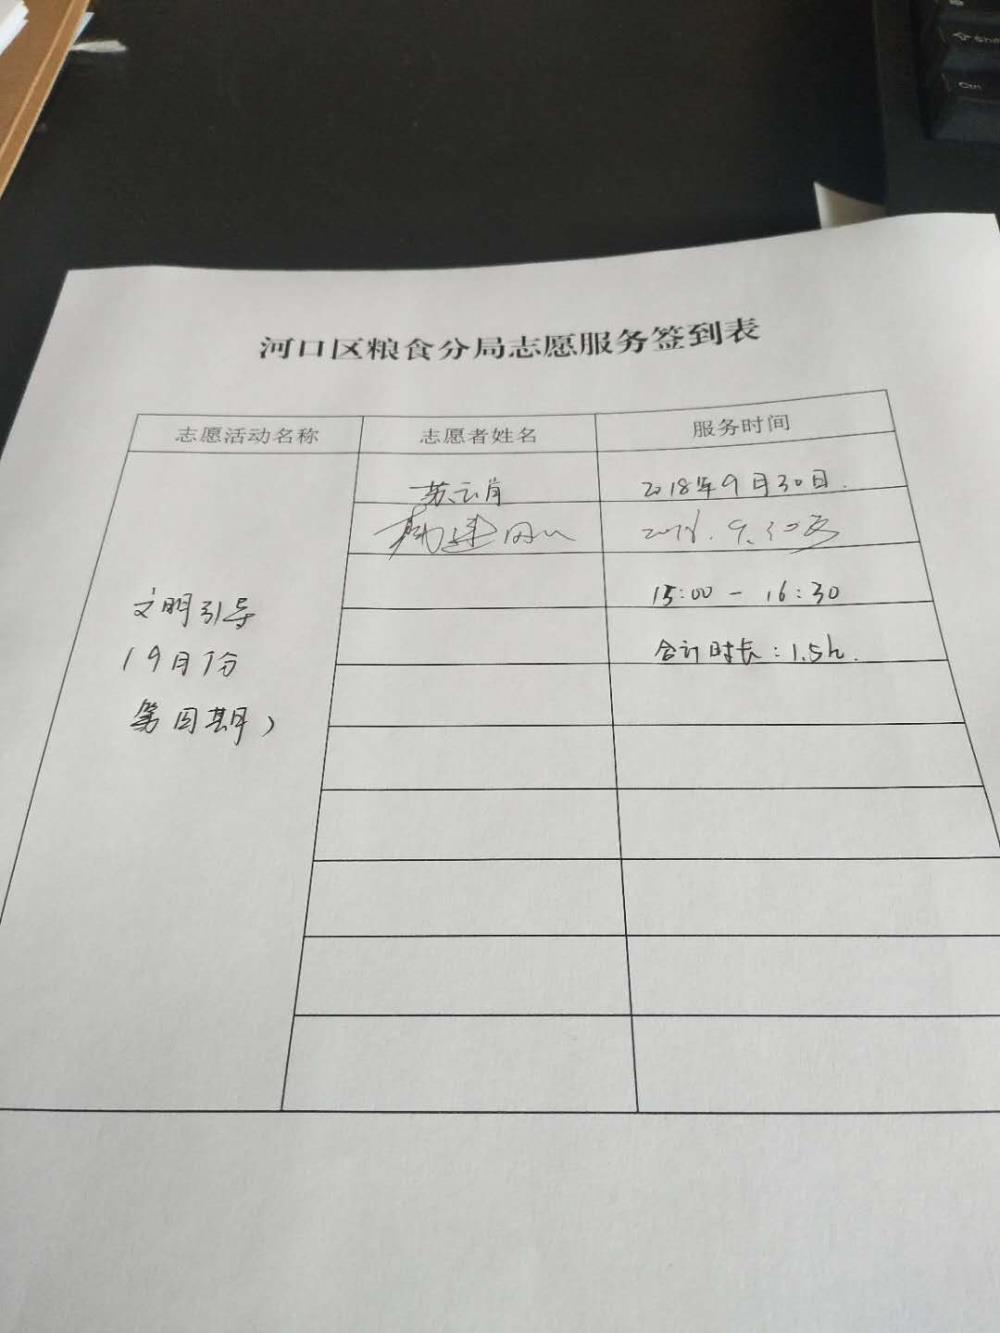 河口区粮食分局志愿服务签到表
志愿活动名称 志愿者姓名 服务时间
苏云肖 2018年9月30日.
2018.9.30
15:00 - 16:30
合计时长:1.5h.
文明引导
(9月份
第四期)
Ctrl